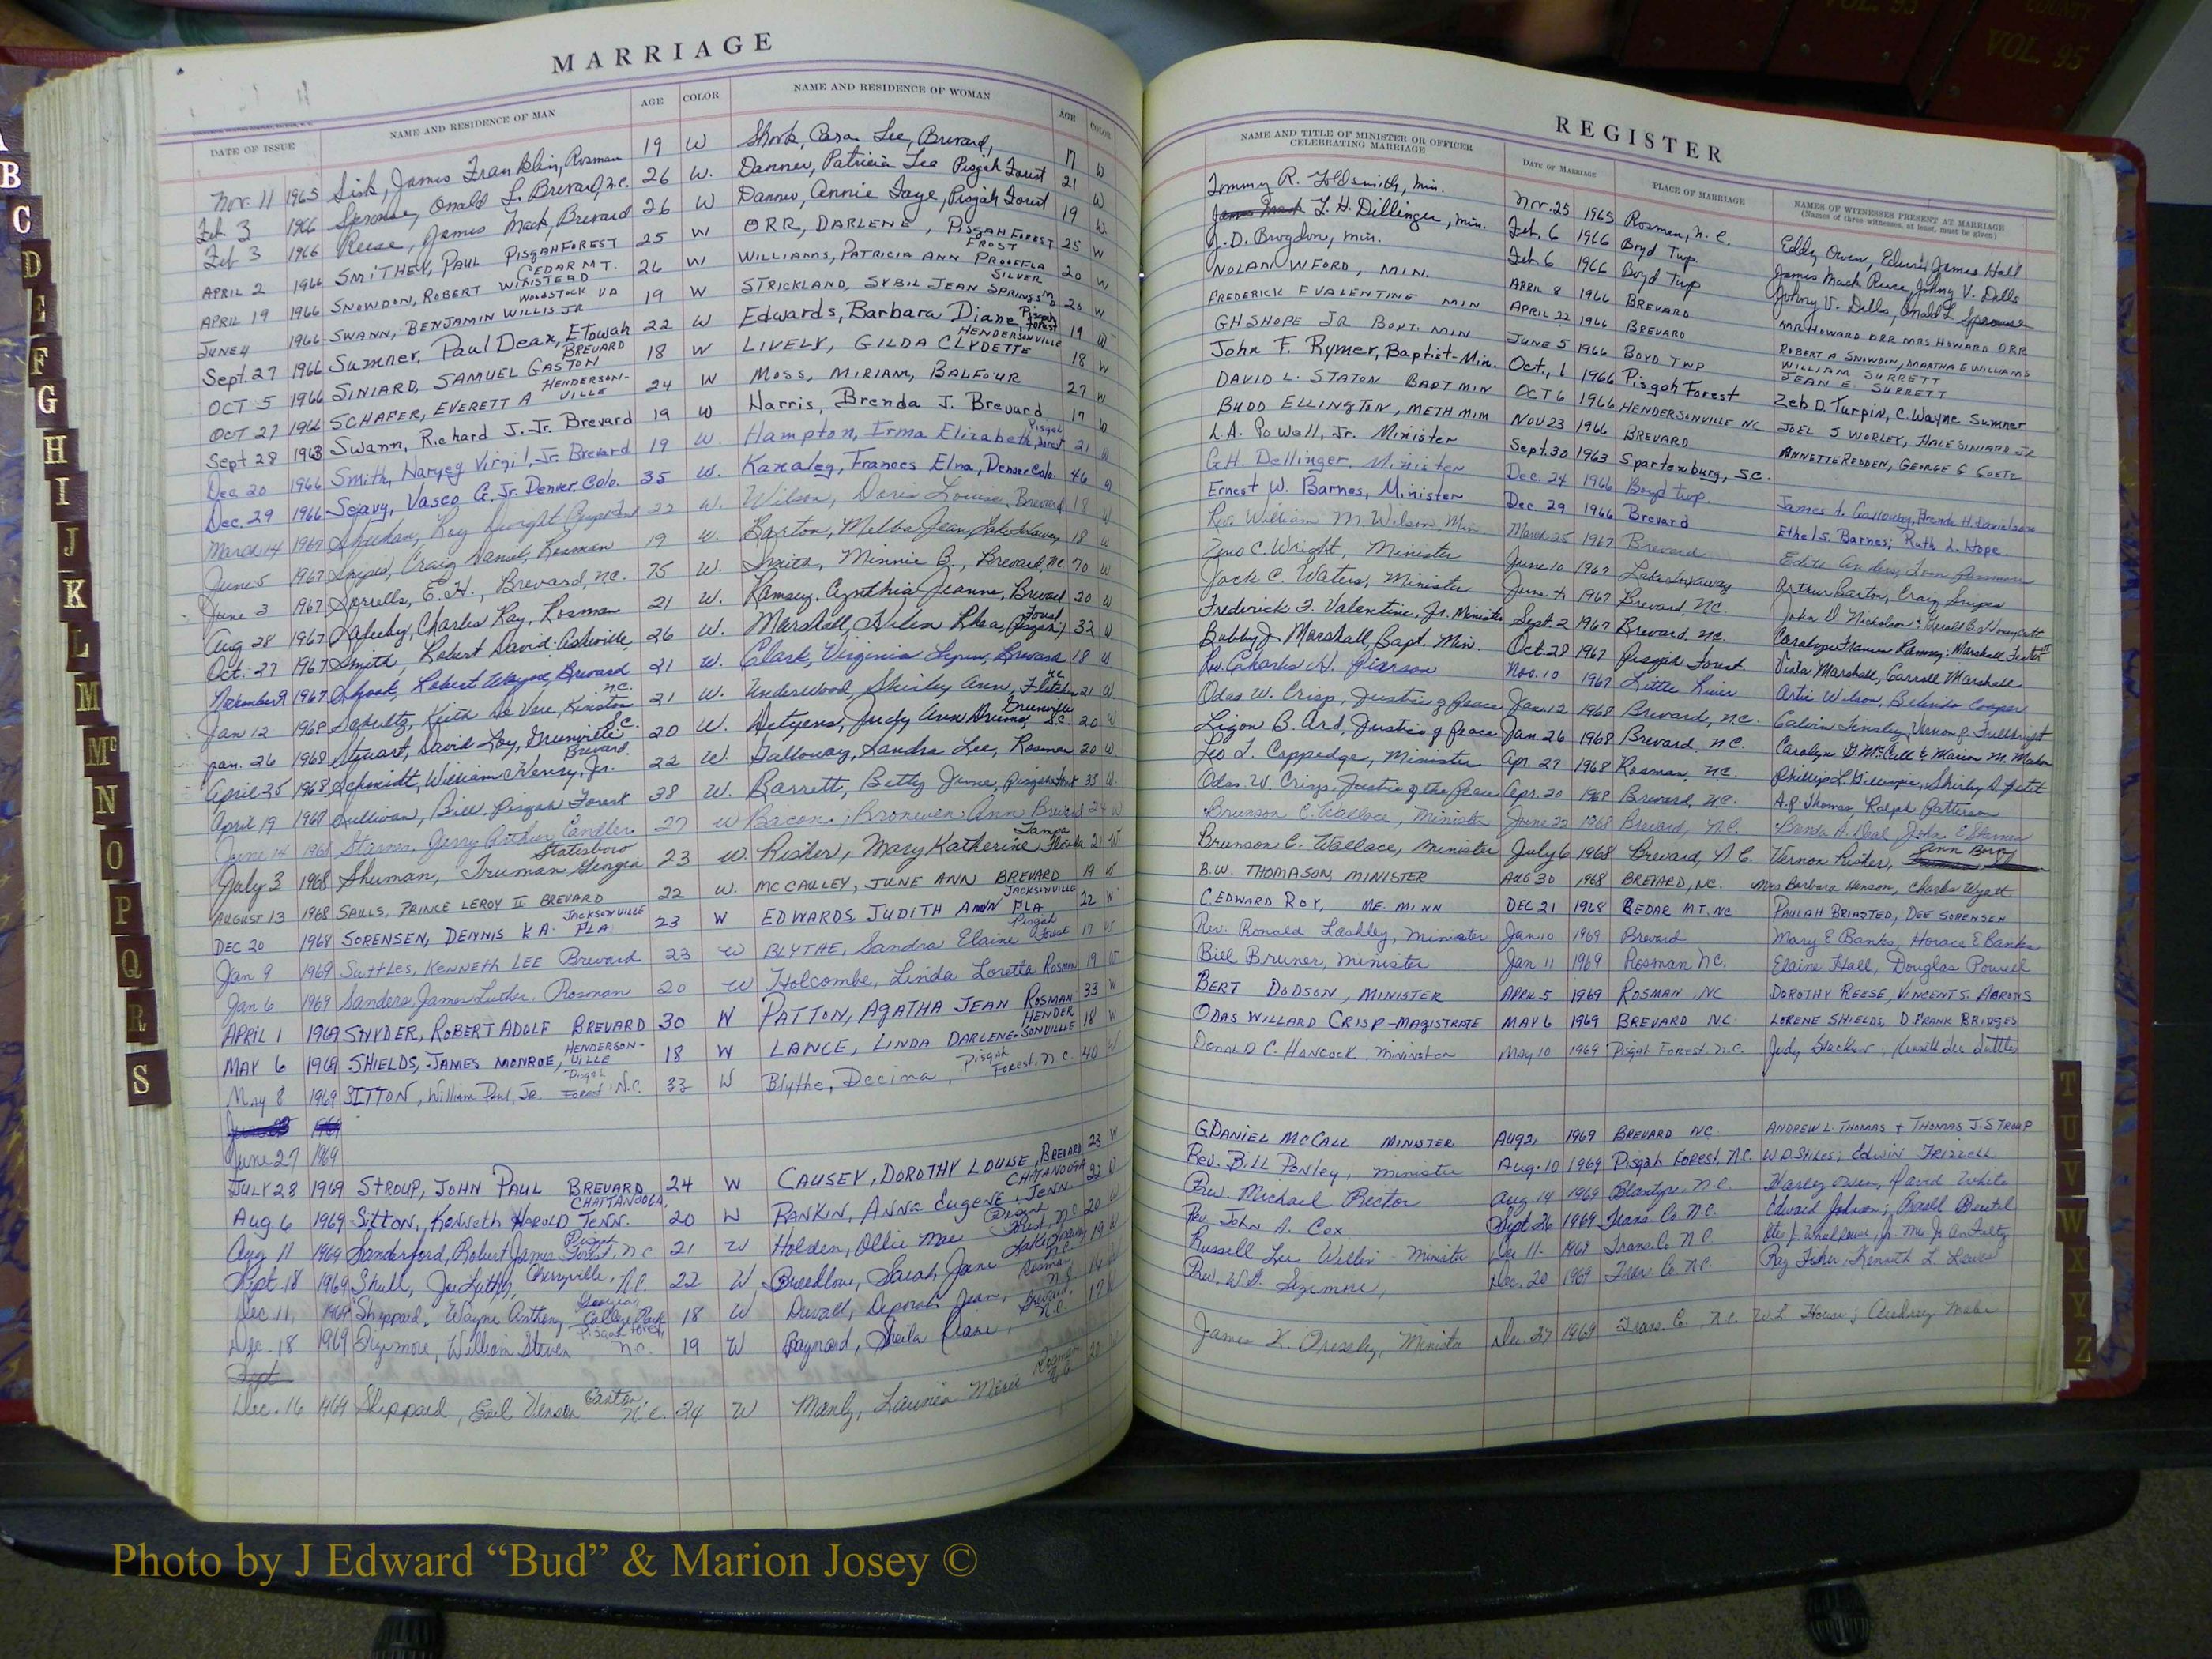 MARRIAGE
DATE OF ISSUE NAME AND RESIDENCE OF MAN AGE COLOR NAME AND RESIDENCE OF WOMAN AGE COLOR
Nov. 11 1965 Sisk, James Franklin, Rosman 19 W Shook, Cara Lee, Brevard, 17 W
Feb 3 1966 Sprouse, Onald L. Brevard, N.C. 26 W. Danner, Patricia Lea Pisgah Forest 21 W
Feb 3 1966 Reese, James Mack, Brevard 26 W Danner, Annie Faye, Pisgah Forest 19 W.
APRIL 2 1966 SMITHEY, PAUL PISGAH FOREST 25 W ORR, DARLENE, PISGAH FOREST 25 W
APRIL 19 1966 SNOWDON, ROBERT WINSTEAD CEDAR MT. 26 W WILLIAMS, PATRICIA ANN FROST PROOF FLA 20 W
JUNE 4 1966 SWANN, BENJAMIN WILLIS JR WOODSTOCK VA 19 W STRICKLAND, SYBIL JEAN SILVER SPRINGS MD 20 W
Sept. 27 1966 Sumner, Paul Deax, Etowah 22 W Edwards, Barbara Diane, Pisgah Forest 19 W
OCT 5 1966 SINIARD, SAMUEL GASTON BREVARD 18 W LIVELY, GILDA CLYDETTE HENDERSONVILLE 18 W
OCT 27 1966 SCHAFER, EVERETT A HENDERSON-VILLE 24 W MOSS, MIRIAM, BALFOUR 27 W
Sept 28 1963 Swann, Richard J. Jr. Brevard 19 W Harris, Brenda J. Brevard 17 W
Dec. 20 1966 Smith, Harvey Virgil, Jr. Brevard 19 W. Hampton, Irma Elizabeth, Pisgah Forest 21 W
Dec. 29 1966 Seavy, Vasco G. Jr. Denver, Colo. 35 W. Kanaley, Frances Elna, Denver Colo. 46 W
March 14 1967 Roy Dwight 22 W. Wilson, Doris Louise, Brevard 18 W
June 5 1967 Snipes, Craig Daniel, Rosman 19 W. Barton, Melba Jean, Lake Toxaway 18 W
June 3 1967 Sorrells, E. H., Brevard, N.C. 75 W. Smith, Minnie B., Brevard, NC 70 W
Aug 28 1967 Charles Ray, Rosman 21 W. Ramsey, Cynthia Jeanne, Brevard 20 W
Oct. 27 1967 Smith, Robert David Asheville 26 W. Marshall, Helen Rhea, (Pisgah Forest) 32 W
November 9 1967 Shook, Robert Wayne, Brevard 21 W. Clark, Virginia Brevard 18 W
Jan 12 1968 Schultz, Keith De Vere, Kinston N.C. 21 W. Underwood, Shirley Ann, Fletcher NC 21 W
Jan. 26 1968 Stewart, David Loy, Greenville S.C. 20 W. Judy Ann Greenville S.C. 20 W
April 25 1968 Schmidt, William Henry, Jr. Brevard 22 W. Galloway, Sandra Lee, Rosman 20 W
April 19 1968 Sullivan, Bill Pisgah Forest 38 W. Barrett, Betty June, Pisgah Forest 33 W.
June 14 1968 Starnes, Jerry Arthur Candler 27 W Bacon, Bronwen Ann Brevard 24 W
July 3 1968 Shuman, Truman Statesboro Georgia 23 W. Risher, Mary Katherine Tampa Florida 21 W
AUGUST 13 1968 SAULS, PRINCE LEROY II BREVARD 22 W. MCCAULEY, JUNE ANN BREVARD 19 W
DEC 20 1968 SORENSEN, DENNIS K A. JACKSONVILLE FLA 23 W EDWARDS JUDITH ANN JACKSONVILLE FLA 22 W
Jan 9 1969 Suttles, Kenneth Lee Brevard 23 W BLYTHE, Sandra Elaine Pisgah Forest 17 W
Jan 6 1969 Sanders, James Luther. Rosman 20 W Holcombe, Linda Loretta Rosman 19 W
APRIL 1 1969 SNYDER, ROBERT ADOLF BREVARD 30 W PATTON, AGATHA JEAN ROSMAN 33 W
MAY 6 1969 SHIELDS, JAMES MONROE, HENDERSON-VILLE 18 W LANCE, LINDA DARLENE HENDERSONVILLE 18 W
May 8 1969 SITTON, William Paul, Jr. Pisgah Forest N.C. 33 W Blythe, Decima, Pisgah Forest, N.C. 40 W
1969
June 27 1969
JULY 28 1969 STROUP, JOHN PAUL BREVARD 24 W CAUSEY, DOROTHY LOUISE, BREVARD 23 W
Aug 6 1969 Sitton, Kenneth Harold CHATTANOOGA, TENN. 20 W RANKIN, Anna Eugene, CHATANOOGA TENN. 22 W
Aug 11 1969 Sanderford, Robert James Pisgah Forest, NC 21 W Holden, Ollie Mae Pisgah Forest, NC 20 W
Sept. 18 1969 Shull, Joe Luther, Cherryville, N.C. 22 W Breedlove, Sarah Jane Lake Toxaway N.C. 19 W
Dec 11, 1969 Sheppard, Wayne Anthony Georgia College Park 18 W Duvall, Deporah Jean, Rosman N.C. 16
Dec. 18 1969 Sizemore, William Steven Pisgah Forest, N.C. 19 W Raynard, Sheila Diane, Brevard, N.C. 17 W
Sept
Dec. 16 1969 Sheppard, Earl Vinson Canton, N.C. 24 W Manly, Launia Marie Rosman N.C. 20
REGISTER
NAME AND TITLE OF MINISTER OR OFFICER CELEBRATING MARRIAGE DATE OF MARRIAGE PLACE OF MARRIAGE NAMES OF WITNESSES PRESENT AT MARRIAGE
(Names of three witnesses, at least, must be given)
Tommy R. Goldsmith, Min. Nov. 25 1965 Rosman, N.C. Eddy Owen, Edwin James Hall
James Mack T. H. Dillinger, Min. Feb. 6 1966 Boyd Twp. James Mack Reese, Johny V. Dills
J. D. Brogdon, Min. Feb 6 1966 Boyd Twp Johny V. Dills, Onald L Sprouse
NOLAN WFORD, MIN. APRIL 8 1966 BREVARD MR HOWARD ORR MRS HOWARD ORR
FREDERICK F VALENTINE MIN APRIL 22 1966 BREVARD ROBERT A SNOWDON, MARTHA E WILLIAMS
GH SHOPE JR BAPT. MIN JUNE 5 1966 BOYD TWP WILLIAM SURRETT JEAN E. SURRETT
John F. Rymer, Baptist-Min. Oct., 1 1966 Pisgah Forest Zeb D. Turpin, C. Wayne Sumner
DAVID L. STATON BAPT MIN OCT 6 1966 HENDERSONVILLE NC JOEL J WORLEY, HALE SINIARD JR
BUDD ELLINGTON, METH MIN NOV 23 1966 BREVARD ANNETTE RODDEN, GEORGE G GOETZ
L.A. Powell, Jr. Minister Sept. 30 1963 Spartanburg, S.C.
G.H. Dellinger, Minister Dec. 24 1966 Boyd Twp. James A. Galloway, Brenda H. Davidson
Ernest W. Barnes, Minister Dec. 29 1966 Brevard Ethel S. Barnes; Ruth L. Hope
Rev. William M. Wilson Min March 25 1967 Brevard
Zeno C. Wright, Minister June 10 1967 Lake Toxaway Arthur Barton, Craig Snipes
Jack C. Waters, Minister June 4 1967 Brevard, NC. John D. Nicholson
Frederick F. Valentine, Jr. Minister Sept. 2 1967 Brevard, NC. Carolyn Frances Ramsey, Marshall
Bobby J. Marshall, Bapt. Min. Oct. 28 1967 Pisgah Forest Vista Marshall, Carroll Marshall
Rev. Charles H. Pierson Nov. 10 1967 Little River Artie Wilson, Belinda Cooper
Odas W. Crisp, Justice of peace Jan. 12 1968 Brevard, NC. Calvin Tinsley, Vernon P. Fullbright
Ligon B. Ard, Justice of peace Jan 26 1968 Brevard, NC. Carolyn G McCall & Marion M. McMahan
Leo T. Coppedge, Minister Apr. 27 1968 Rosman, NC. Phillip L. Gillespie, Shirley D. Petit
Odas. W. Crisp, Justice of the Peace Apr. 20 1968 Brevard, NC. A.P. Thomas, Ralph Patterson
Brunson C. Wallace, Minister June 22 1968 Brevard, N.C. Brenda A. Deal John E Starnes
Brunson C. Wallace, Minister July 6 1968 Brevard, N.C. Vernon Risher, Ann
B.W. THOMASON, MINISTER AUG 30 1968 BREVARD, NC. Mrs Barbara Henson, Charles Wyatt
C. EDWARD ROY, ME. MINN DEC 21 1968 CEDAR MT. NC PAULAH BRIASTED, DEE SORENSEN
Rev. Ronald Lashley, Minister Jan 10 1969 Brevard Mary E Banks, Horace E Banks
Bill Bruner, Minister Jan 11 1969 Rosman NC. Elaine Hall, Douglas Powell
BERT DODSON, MINISTER APRIL 5 1969 ROSMAN, NC DOROTHY REESE, VINCENT S. AARONS
ODAS WILLARD CRISP-MAGISTRATE MAY 6 1969 BREVARD NC. LORENE SHIELDS, D. FRANK BRIDGES
Donald C. Hancock Minister May 10 1969 Pisgah Forest N.C. Judy
G DANIEL MCCALL MINISTER AUG 2, 1969 BREVARD NC. ANDREW L. THOMAS + THOMAS J. STROUP
Rev. Bill Penley, minister Aug. 10 1969 Pisgah Forest, N.C. W.D. Stiles; Edwin Frizzell
Rev. Michael Rector Aug 14 1969 Blantyre, N.C. Harley Owen, David White
Rev. John A. Cox Sept 26 1969 Trans. Co N.C. Edward Johnson;
Russell Lee Wilbur Minister Dec 11- 1969 Trans. Co N.C
Rev. W.D. Sizemore, Dec. 20 1969 Trans Co N.C. Ray Fisher, Kenneth L.
James K. Pressley, Minister Dec. 27 1969 Trans. Co. N.C. W.L. House; Audrey
B
C
D
E
F
G
H
I
J
K
L
M
Mc
N
O
P
Q
R
S
T
U
V
W
X
Y
Z
VOL. 93
COUNTY
VOL. 95
Photo by J Edward “Bud” & Marion Josey ©